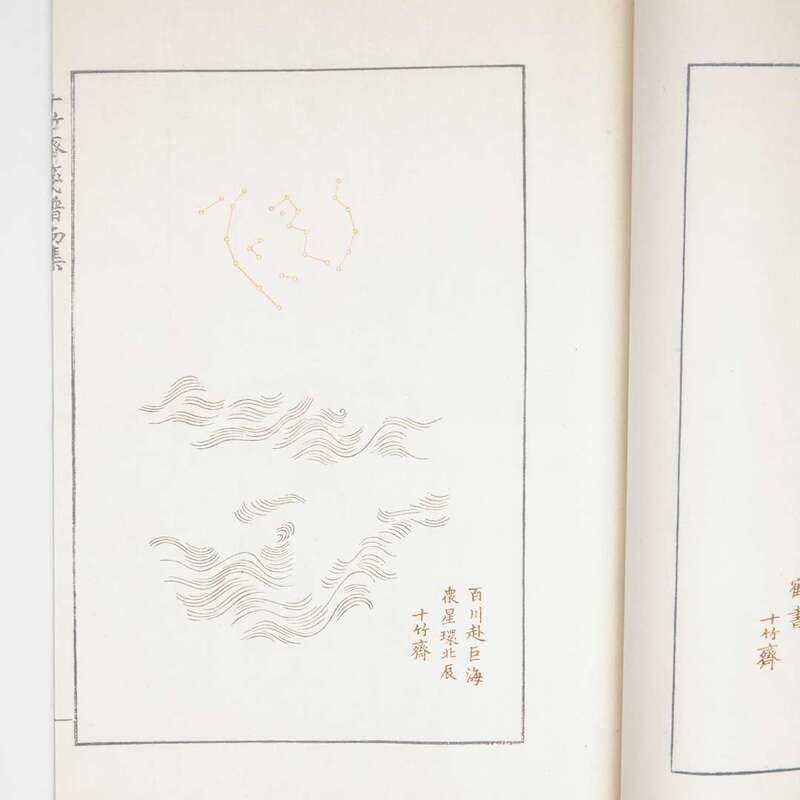 百川赴巨海
眾星環北辰
十竹齋
十竹齋箋譜初集
十竹齋